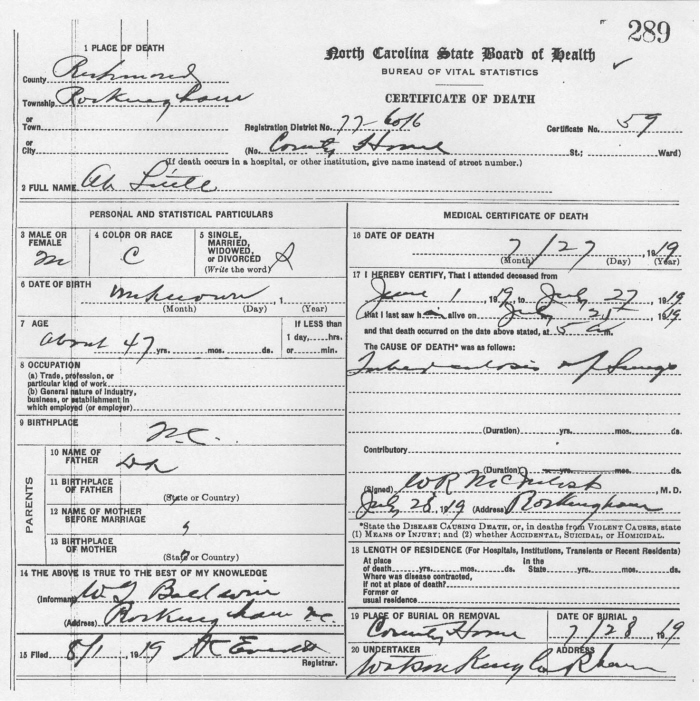 289
1 PLACE OF DEATH
North Carolina State Board of Health
BUREAU OF VITAL STATISTICS
CERTIFICATE OF DEATH
County Richmond
Township Rockingham
or
Town
Registration District No. 77-6016
Certificate No. 59
or
City
(No. County Home St.; Ward)
(If death occurs in a hospital, or other institution, give name instead of street number.)
2 FULL NAME Ab Little
PERSONAL AND STATISTICAL PARTICULARS
3 MALE OR FEMALE M
4 COLOR OR RACE C
5 SINGLE, MARRIED, WIDOWED, or DIVORCED (Write the word) S
6 DATE OF BIRTH unknown, 1
(Month) (Day) (Year)
7 AGE about 47 yrs. mos. ds.
If LESS than 1 day, hrs. or min.
8 OCCUPATION
(a) Trade, profession, or particular kind of work
(b) General nature of industry, business, or establishment in which employed (or employer)
9 BIRTHPLACE N.C.
PARENTS
10 NAME OF FATHER
11 BIRTHPLACE OF FATHER
(State or Country)
12 NAME OF MOTHER BEFORE MARRIAGE
13 BIRTHPLACE OF MOTHER
(State or Country)
14 THE ABOVE IS TRUE TO THE BEST OF MY KNOWLEDGE
(Informant) Baldwin
(Address) Rockingham N.C.
15 Filed 8/1, 1919
Registrar.
MEDICAL CERTIFICATE OF DEATH
16 DATE OF DEATH
7/27 1919
(Month) (Day) (Year)
17 I HEREBY CERTIFY, That I attended deceased from
June 1 1919, to July 27 1919
that I last saw him alive on July 25 1919
and that death occurred on the date above stated, at 5
The CAUSE OF DEATH* was as follows:
Tuberculosis of Lungs
(Duration) yrs. mos. ds.
Contributory
(Duration) yrs. mos. ds.
(Signed) W R , M.D.
July 28, 1919 (Address) Rockingham
*State the DISEASE CAUSING DEATH, or, in deaths from VIOLENT CAUSES, state
(1) MEANS OF INJURY; and (2) whether ACCIDENTAL, SUICIDAL, or HOMICIDAL.
18 LENGTH OF RESIDENCE (For Hospitals, Institutions, Transients or Recent Residents)
At place of death yrs. mos. ds. In the State yrs. mos. ds.
Where was disease contracted, if not at place of death?
Former or usual residence
19 PLACE OF BURIAL OR REMOVAL
County Home
DATE OF BURIAL
7/28 1919
20 UNDERTAKER
Watson King Co
ADDRESS